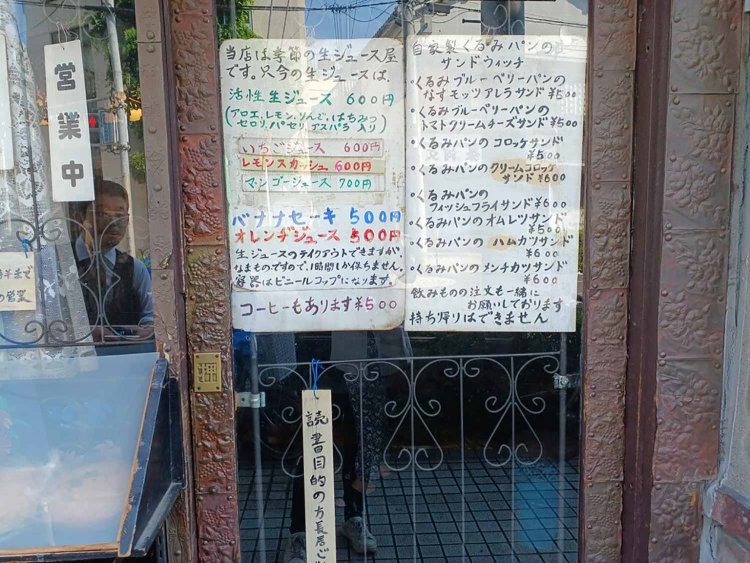 営業中
当店は季節の生ジュース屋
です。只今の生ジュースは、
活性生ジュース 600円
(アロエ、レモン、りんご、はちみつ
セロリ、パセリ、アスパラ入り)
いちごジュース 600円
レモンスカッシュ 600円
マンゴージュース 700円
バナナセーキ 500円
オレンヂジュース 500円
生ジュースのテイクアウトできますが、
なまものですので、1時間しか保ちません。
容器はビニールコップになります。
コーヒーもあります¥500
自家製くるみパンの
サンドウィッチ
・くるみブルーベリーパンの
なすモッツアレラサンド¥500
・くるみブルーベリーパンの
トマトクリームチーズサンド¥500
・くるみパンの コロッケサンド
¥500
・くるみパンの クリームコロッケ
サンド¥600
・くるみパンの
フィッシュフライサンド¥600
・くるみパンのオムレツサンド
¥500
・くるみパンの ハムカツサンド
¥600
・くるみパンのメンチカツサンド
¥600
飲みものの注文も一緒に
お願いしております
持ち帰りはできません
読書目的の方長居ご